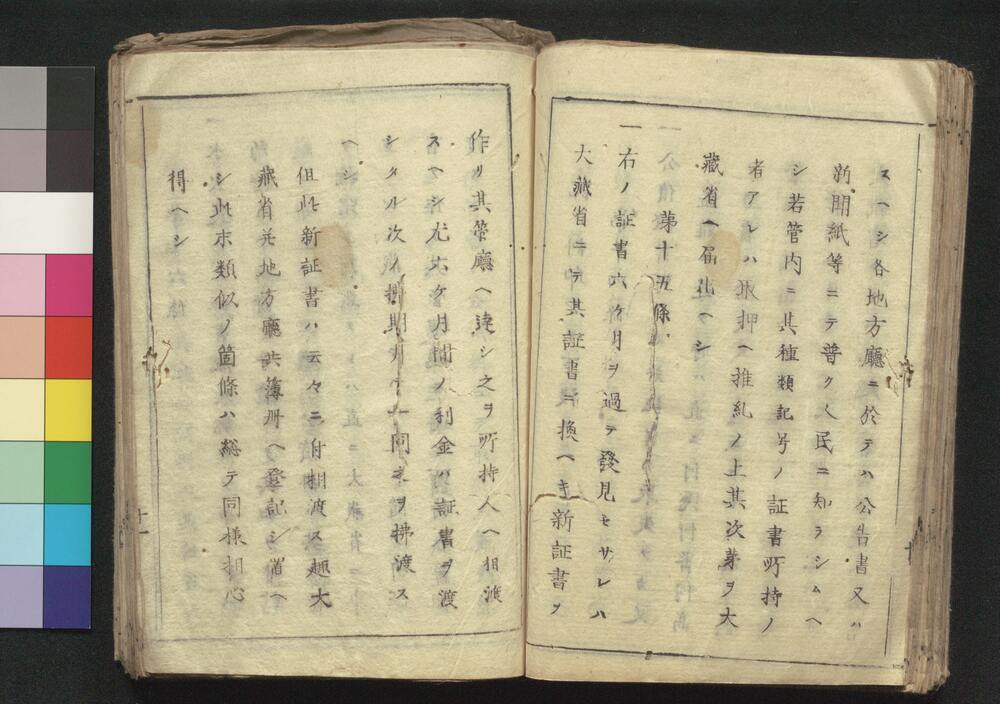 スヘシ各地方廳ニ於テハ公告書又ハ
新聞紙等ニテ普ク人民ニ知ラシムヘ
シ若管内ニ其種類記号ノ証書所持ノ
者アレハ取押ヘ推糺ノ上其次第ヲ大
藏省ヘ届出ヘシ
第十五條
一右ノ証書六ケ月ヲ過テ發見セサレハ
大藏省ニテ其証書ニ換ヘキ新証書ヲ
作リ其管廳ヘ達シ之ヲ所持人ヘ相渡
スヘシ尤六ケ月間ノ利金ハ証書ヲ渡
シタル次ノ拂期ニ一同之ヲ拂渡ス
ヘシ
但此新証書ハ云々ニ付相渡ス趣大
藏省并地方廳共簿冊ヘ登記シ置ヘ
シ此末類似ノ箇條ハ総テ同様相心
得ヘシ
十一